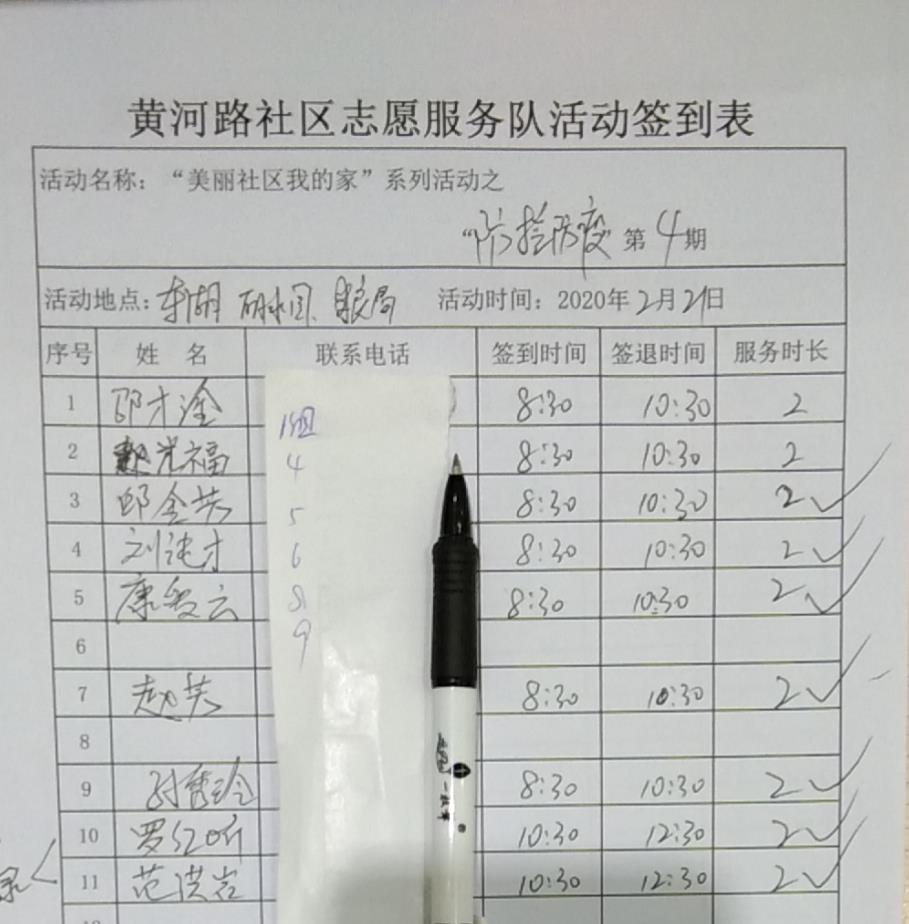 黄河路社区志愿服务队活动签到表
活动名称：“美丽社区我的家”系列活动之
“防抢防疫”第4期
活动地点：东湖 丽水园、粮局 活动时间：2020年2月21日
序号 姓 名 联系电话 签到时间 签退时间 服务时长
1 邵才淦 8:30 10:30 2
2 赵光福 8:30 10:30 2
3 邱金芬 8:30 10:30 2
4 刘 才 8:30 10:30 2
5 康爱云 8:30 10:30 2
6
7 赵芬 8:30 10:30 2
8
9 孙秀玲 8:30 10:30 2
10 罗红昕 10:30 12:30 2
11 范洪岩 10:30 12:30 2
4
5
6
8
9